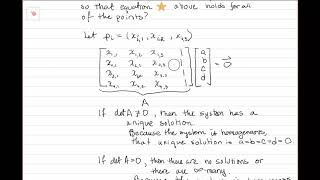 so that equation ☆ above holds for all
of the points?
Let pᵢ = (xᵢ,₁, xᵢ,₂, xᵢ,₃)
x₁,₁ x₁,₂ x₁,₃ 1 a
x₂,₁ x₂,₂ x₂,₃ 1 b = 0⃗
x₃,₁ x₃,₂ x₃,₃ 1 c
x₄,₁ x₄,₂ x₄,₃ 1 d
A
If det A ≠ 0, then the system has a
unique solution.
Because the system is homogeneous,
that unique solution is a=b=c=d=0.
If det A=0, then there are no solutions or
there are ∞-many.